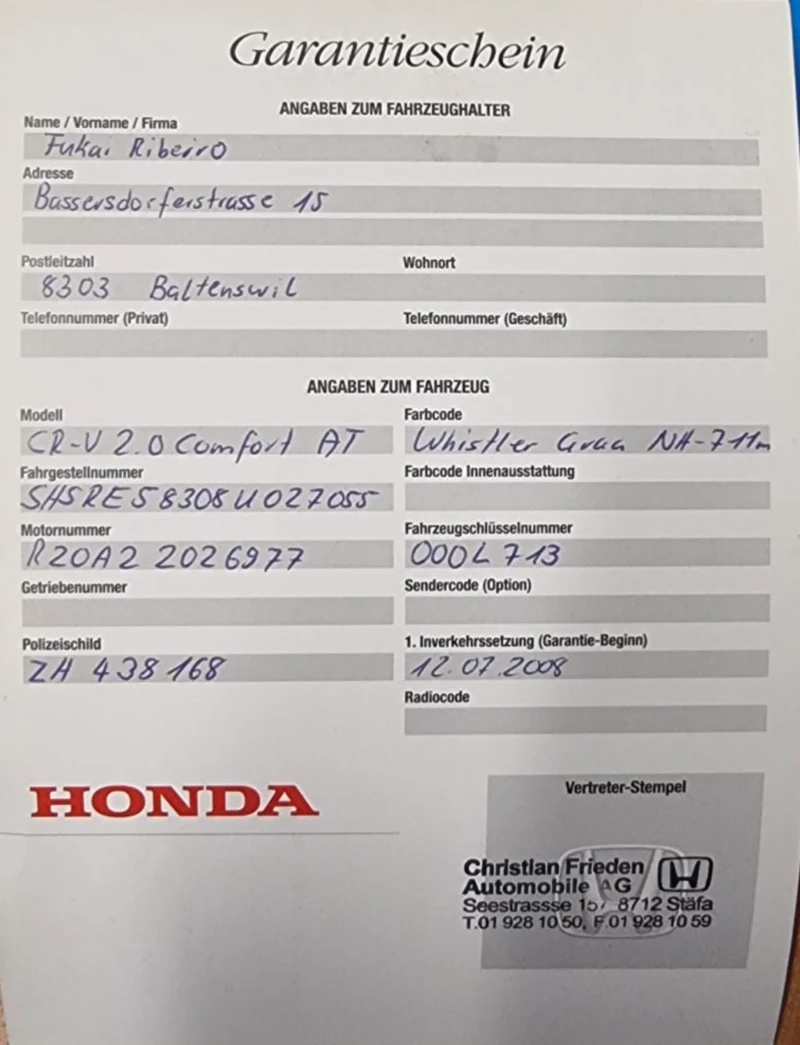 Garantieschein
ANGABEN ZUM FAHRZEUGHALTER
Name / Vorname / Firma
Fukai Ribeiro
Adresse
Bassersdorferstrasse 15
Postleitzahl Wohnort
8303 Baltenswil
Telefonnummer (Privat) Telefonnummer (Geschäft)
ANGABEN ZUM FAHRZEUG
Modell Farbcode
CR-V 2.0 Comfort AT Whistler NH-711m
Fahrgestellnummer Farbcode Innenausstattung
SHSRE58308U027055
Motornummer Fahrzeugschlüsselnummer
R20A2 2026977 000L713
Getriebenummer Sendercode (Option)
Polizeischild 1. Inverkehrssetzung (Garantie-Beginn)
ZH 438168 12.07.2008
Radiocode
HONDA
Vertreter-Stempel
Christian Frieden
Automobile AG
Seestrassse 8712 Stäfa
T.01 928 10 50, F.01 928 10 59